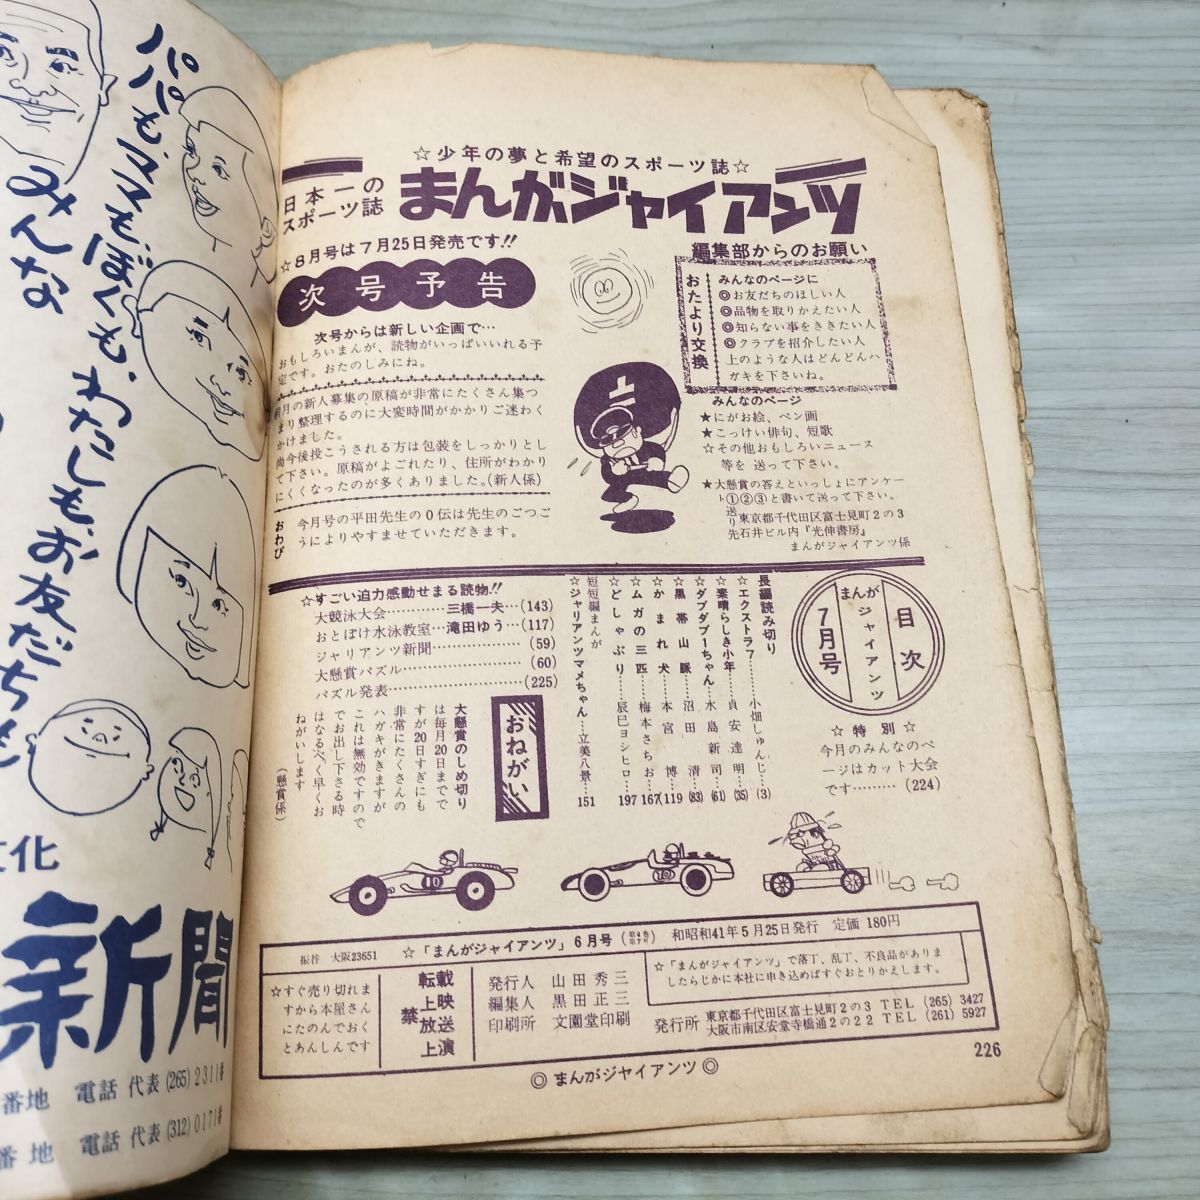 パパも、ママも、ぼくも、わたしも、お友だちも
みんな
文化
新聞
番地 電話 代表(265)2311番
番地 電話 代表(312)0171番
☆少年の夢と希望のスポーツ誌☆
日本一の
スポーツ誌
まんがジャイアンツ
☆8月号は7月25日発売です!!
次号予告
次号からは新しい企画で…
おもしろいまんが、読物がいっぱいいれる予
定です。おたのしみにね。
前月の新人募集の原稿が非常にたくさん集つ
まり整理するのに大変時間がかかりご迷わく
かけました。
尚今後投こうされる方は包装をしっかりとし
て下さい。原稿がよごれたり、住所がわかり
にくくなったのが多くありました。(新人係)
おわび
今月号の平田先生の0伝は先生のごつご
うによりやすませていただきます。
編集部からのお願い
おたより交換
みんなのページに
◎お友だちのほしい人
◎品物を取りかえたい人
◎知らない事をききたい人
◎クラブを紹介したい人
上のような人はどんどんハ
ガキを下さいね。
みんなのページ
★にがお絵、ペン画
★こっけい俳句、短歌
☆その他おもしろいニュース
等を 送って下さい。
★大懸賞の答えといっしょにアンケー
ト①②③と書いて送って下さい。
送り先
東京都千代田区富士見町2の3
石井ビル内『光伸書房』
まんがジャイアンツ係
目次
まんがジャイアンツ
7月号
☆特別☆
今月のみんなのペ
ージはカット大会
です………(224)
長編読み切り
★エクストラ7……小畑しゅんじ…(3)
★素晴らしき小年…貞安達明…(35)
★ダブダブ1ちゃん…水島新司…(61)
★黒帯山脈…沼田清…(83)
★かまれ犬…本宮博…(119)
★ムガの三匹…梅本さちお…167
★どしゃぶり…辰巳ヨシヒロ…197
短短編まんが
★ジャリアンツマメちゃん……立美八景……151
☆すごい迫力感動せまる読物!!
大競泳大会…………三橋一夫…(143)
おとぼけ水泳教室…滝田ゆう…(117)
ジャリアンツ新聞………………(59)
大懸賞パズル……………………(60)
パズル発表………………………(225)
おねがい
大懸賞のしめ切り
は毎月20日までで
すが20日すぎにも
非常にたくさんの
ハガキがきますが
これは無効ですので
でお出し下さる時
はなるべく早くお
ねがいします
(懸賞係)
10
10
振替 大阪23651
☆「まんがジャイアンツ」6月号 和昭和41年5月25日発行 定価 180円
☆すぐ売り切れま
すから本屋さん
にたのんでおく
とあんしんです
禁
転載
上映
放送
上演
発行人 山田秀三
編集人 黒田正三
印刷所 文園堂印刷
☆「まんがジャイアンツ」で落丁、乱丁、不良品がありま
したらじかに本社に申き込めばすぐおとりかえします。
発行所
東京都千代田区富士見町2の3 TEL (265) 3427
大阪市南区安堂寺橋通2の22 TEL (261) 5927
◎まんがジャイアンツ◎
226